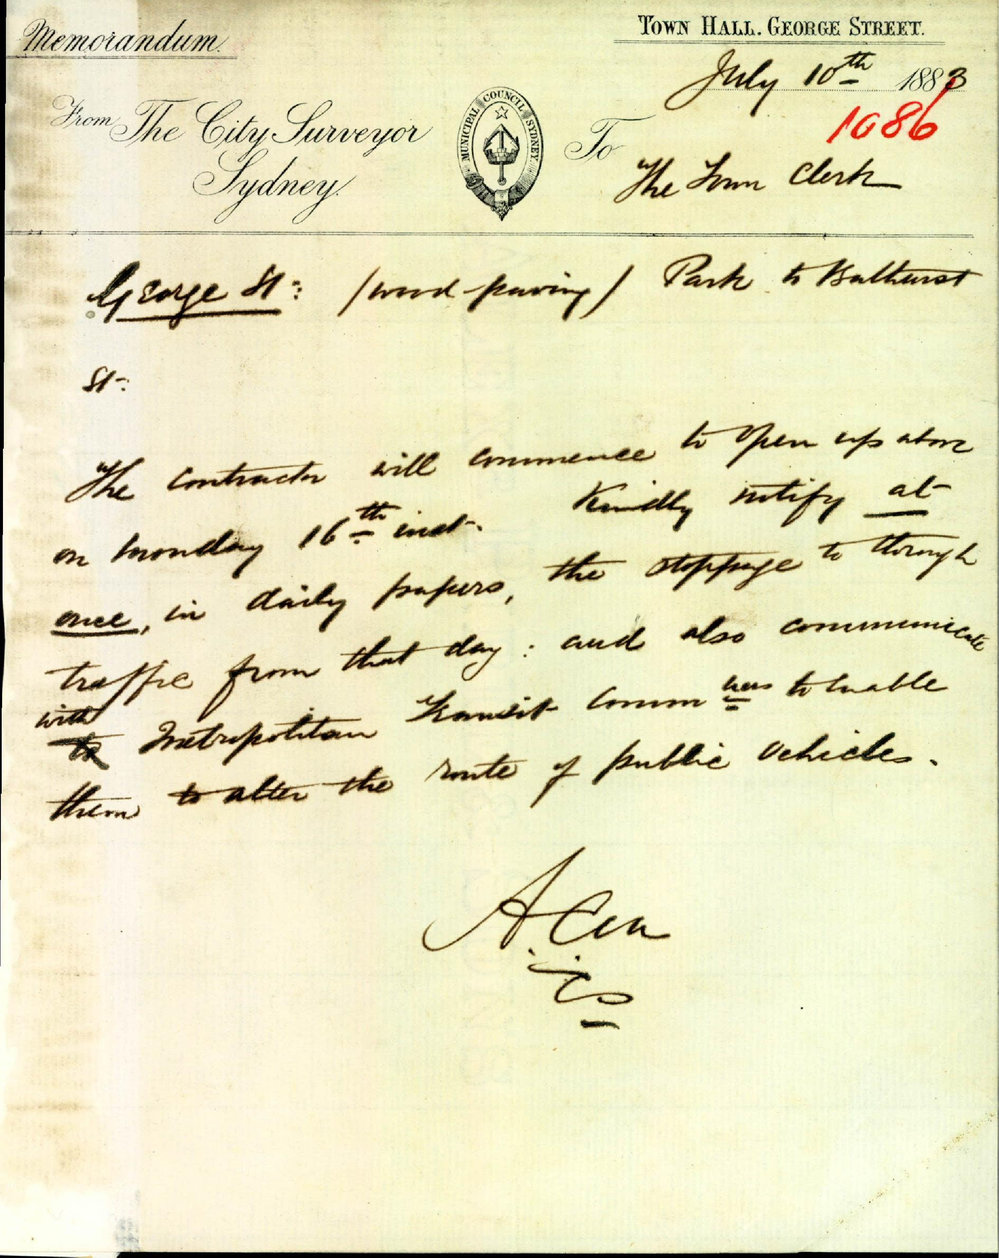 Memorandum.
TOWN HALL. GEORGE STREET.
July 10th 1883
1086
From The City Surveyor
Sydney.
MUNICIPAL COUNCIL SYDNEY
To
The Town Clerk
George St: (wood-paving) Park to Bathurst
St:
The contractor will commence to open up above
on monday 16th inst. Kindly notify at
once, in daily papers, the stoppage to through
traffic from that day: and also communicate
with to Metropolitan Transit Commrs to enable
them to alter the route of public vehicles.
A.
CS